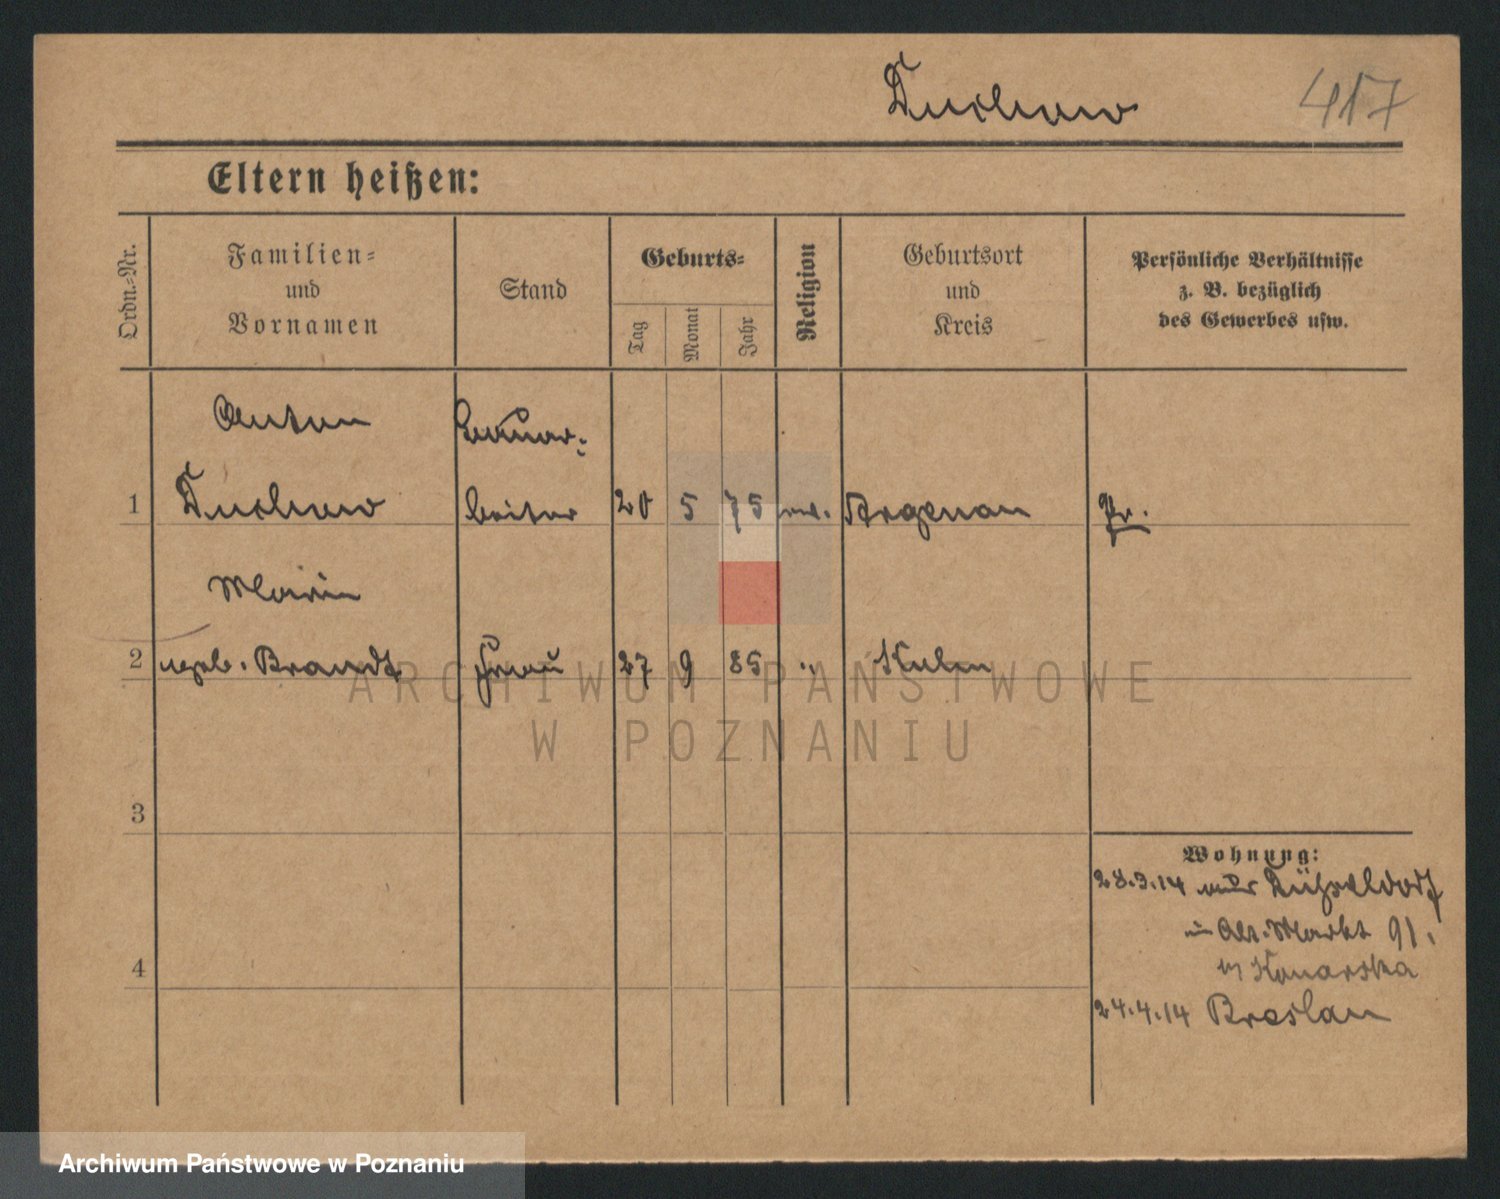 Duchow
417
Eltern heißen:
Ordn.=Nr.
Familien=
und
Vornamen
Stand
Geburts=
Tag
Monat
Jahr
Religion
Geburtsort
und
Kreis
Persönliche Verhältnisse
z. B. bezüglich
des Gewerbes usw.
Anton
1 Duchow 20 5 75 Argenau Pr.
Maria
2 geb. Brandt Frau 27 9 85 " Kulm
3
4
Wohnung:
28.3.14 Düsseldorf
Alt. Markt 91.
Konarska
24.4.14 Breslau
ARCHIWUM PAŃSTWOWE
W POZNANIU
Archiwum Państwowe w Poznaniu